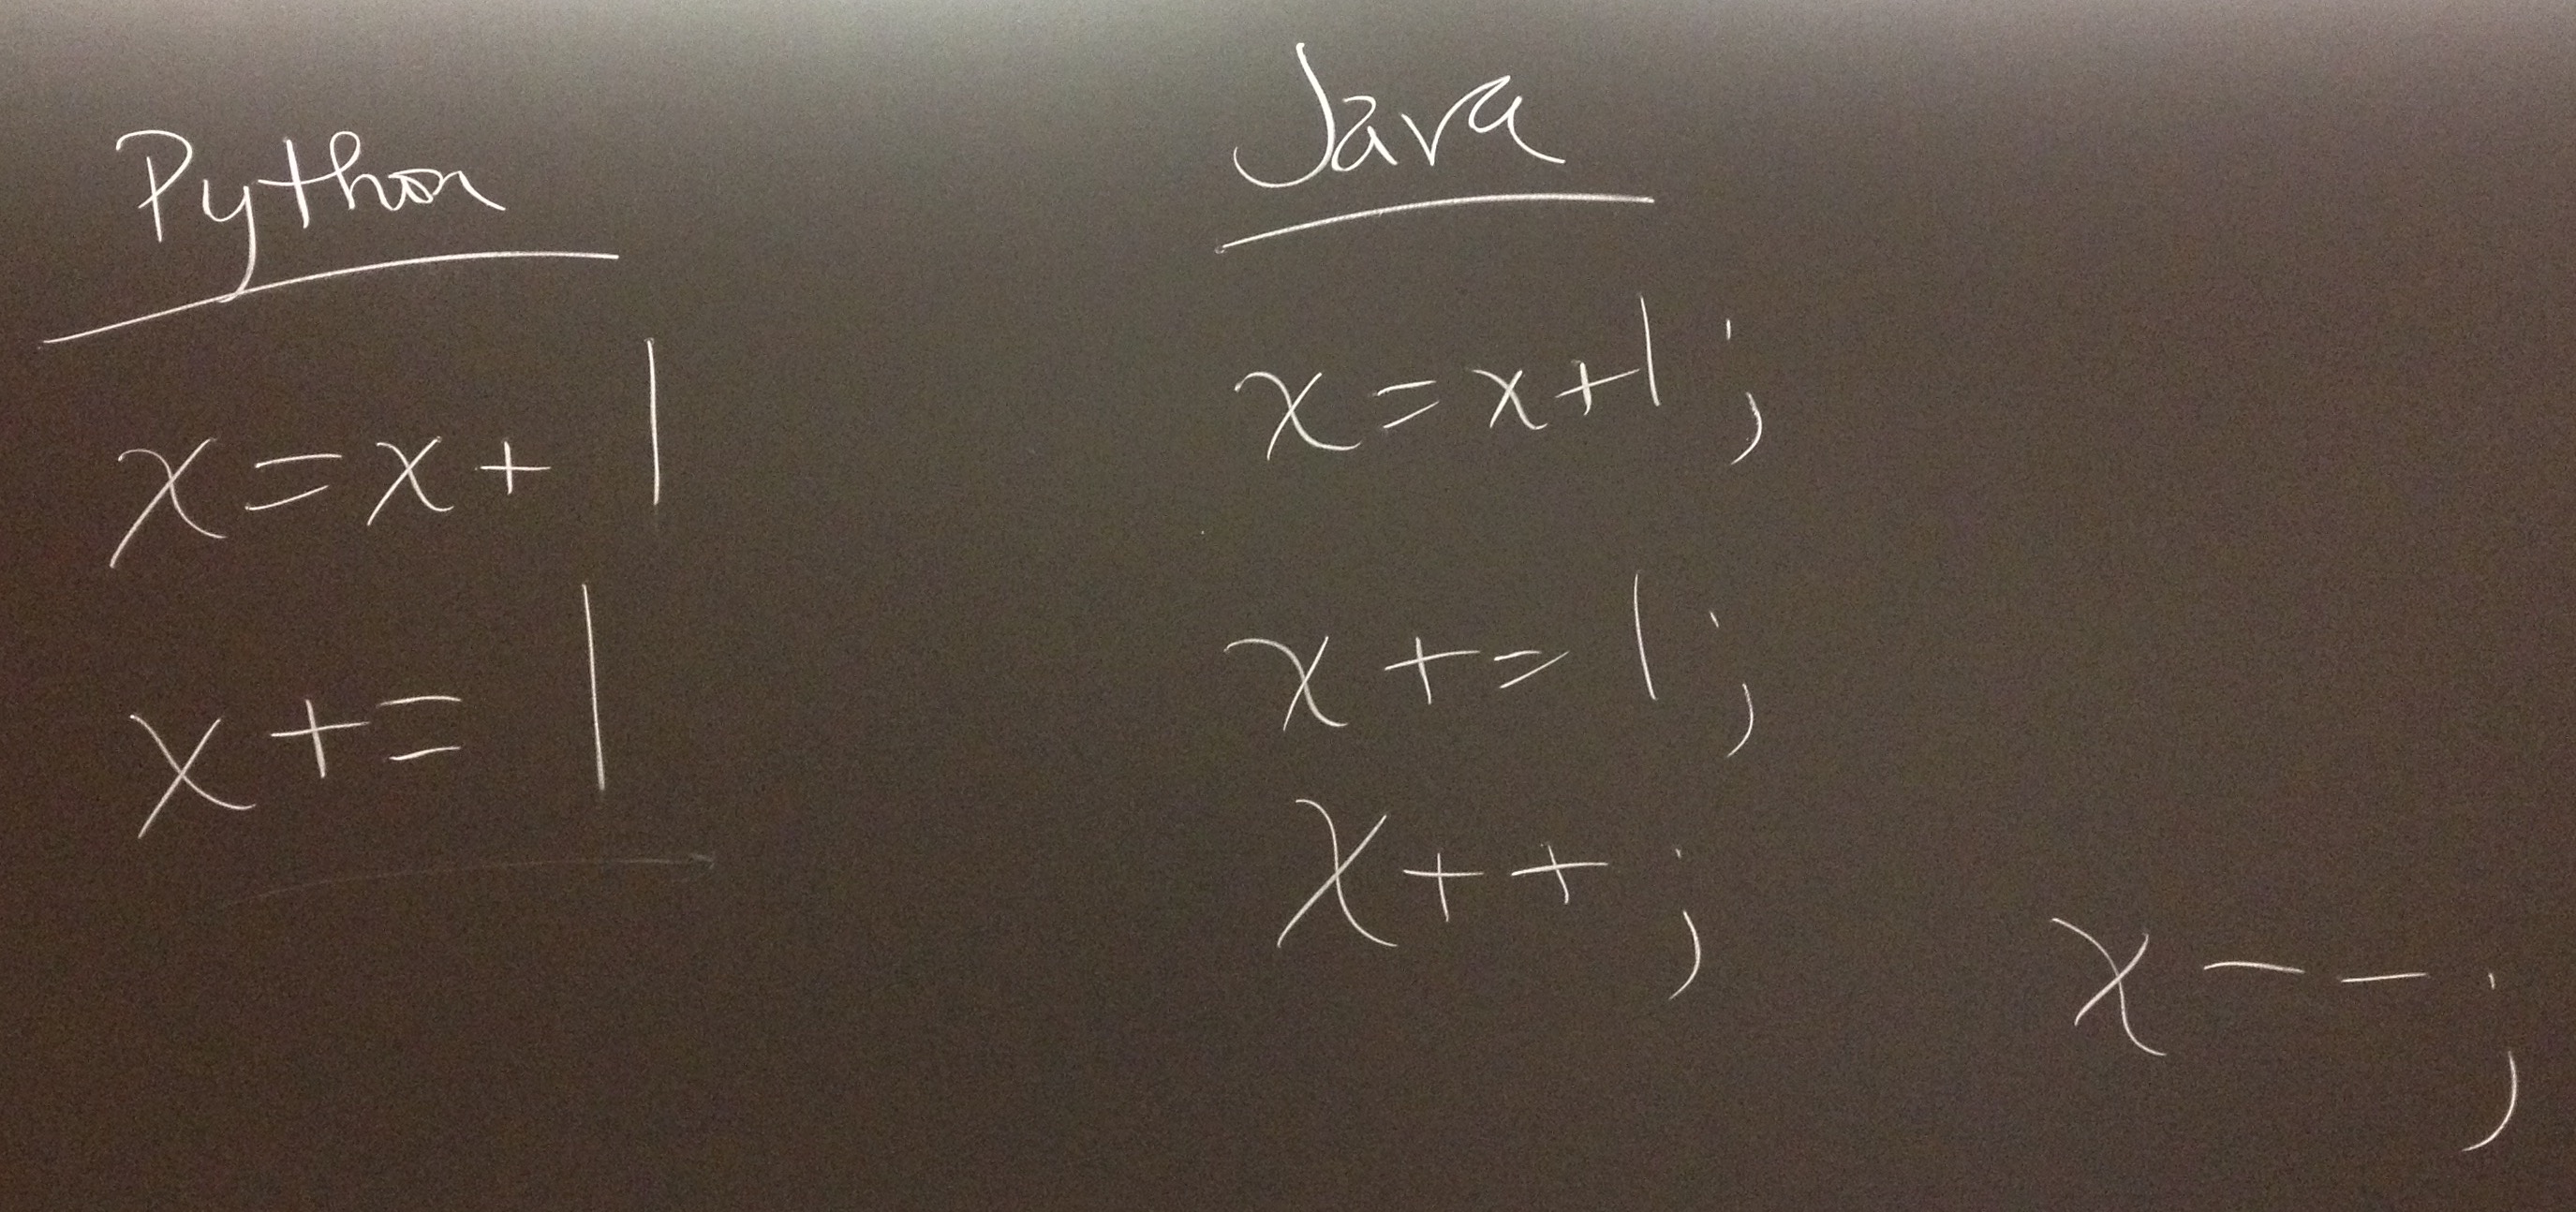 Python
x = x + 1
x += 1
Java
x = x + 1 ;
x += 1 ;
x ++ ;
x -- ;